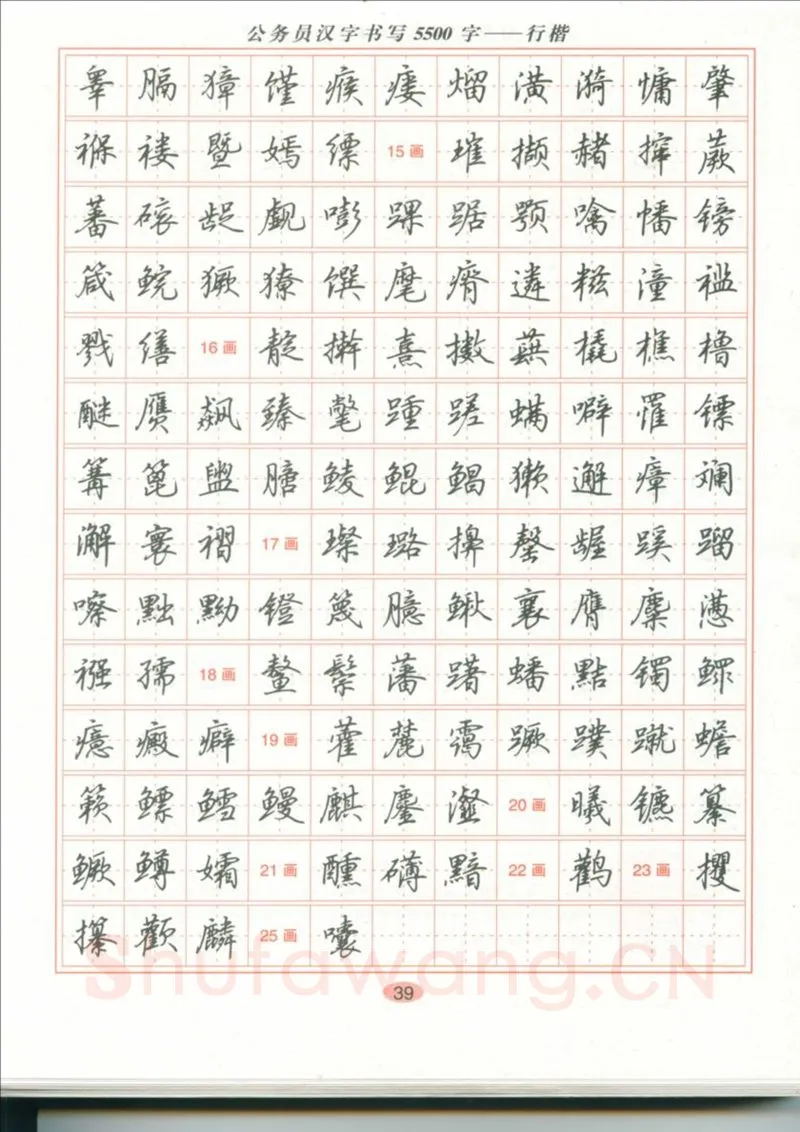 公务员汉字书写 5500 字——行楷
睾 膈 獐 馑 瘊 瘘 熘 潢 漪 慵 肇
褓 褛 暨 嫣 缥 15画 璀 撷 赭 撺 蕨
蕃 磙 龊 觑 嘭 踝 踞 颚 噙 幡 镑
箴 鲩 獗 獠 馔 麾 瘠 遴 糍 潼 褴
戮 缮 16画 靛 擀 熹 擞 蕻 橇 樵 橹
醚 赝 飙 臻 氅 踵 蹉 螨 噼 罹 镖
篝 篦 盥 膪 鲮 鲲 鲳 獭 邂 瘴 斓
澥 寰 褶 17画 璨 璐 擤 罄 龌 蹊 蹓
嚓 黜 黝 镫 篾 臆 鳅 襄 膺 麋 懑
襁 孺 18画 鳌 鬃 藩 躇 蟠 黠 镯 鳏
癔 癜 癖 19画 藿 麓 霭 蹶 蹼 蹴 蟾
籁 鳔 鳕 鳗 麒 鏖 瀣 20画 曦 镳 纂
鳜 鳟 孀 21画 醺 礴 黯 22画 鹳 23画 攫
攥 颧 麟 25画 囔
Shufawang.CN
39